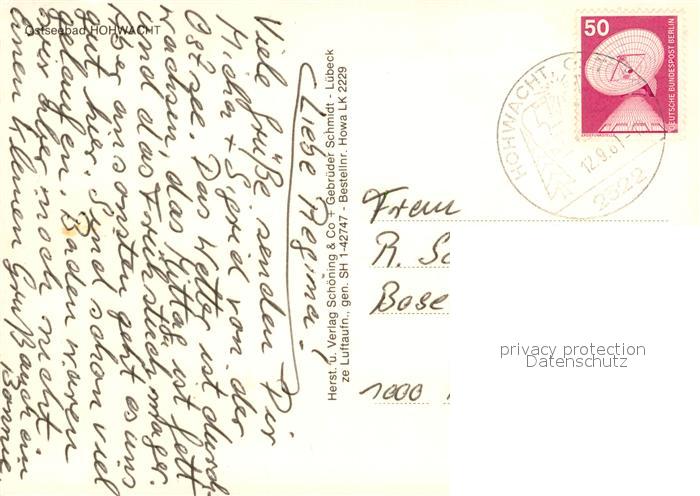 Ostseebad HOHWACHT
Liebe Regina!
Viele Grüße senden Dir
Micha + Sigrid von der
Ostsee. Das Wetter ist durch-
wachsen, das Mittag ist fett
und das Frühstück mager.
Aber ansonsten geht es uns
gut hier. Sind schon viel
gelaufen. Baden waren
wir aber noch nicht.
einen kleinen Gruß auch an
Herst. u. Verlag Schöning & Co + Gebrüder Schmidt - Lübeck
ze Luftaufn., gen. SH 1-42747 - Bestellnr. Howa LK 2229
50
DEUTSCHE BUNDESPOST BERLIN
HOHWACHT,
12.9.81-
2322
R. Sc
Base
1000
privacy protection
Datenschutz